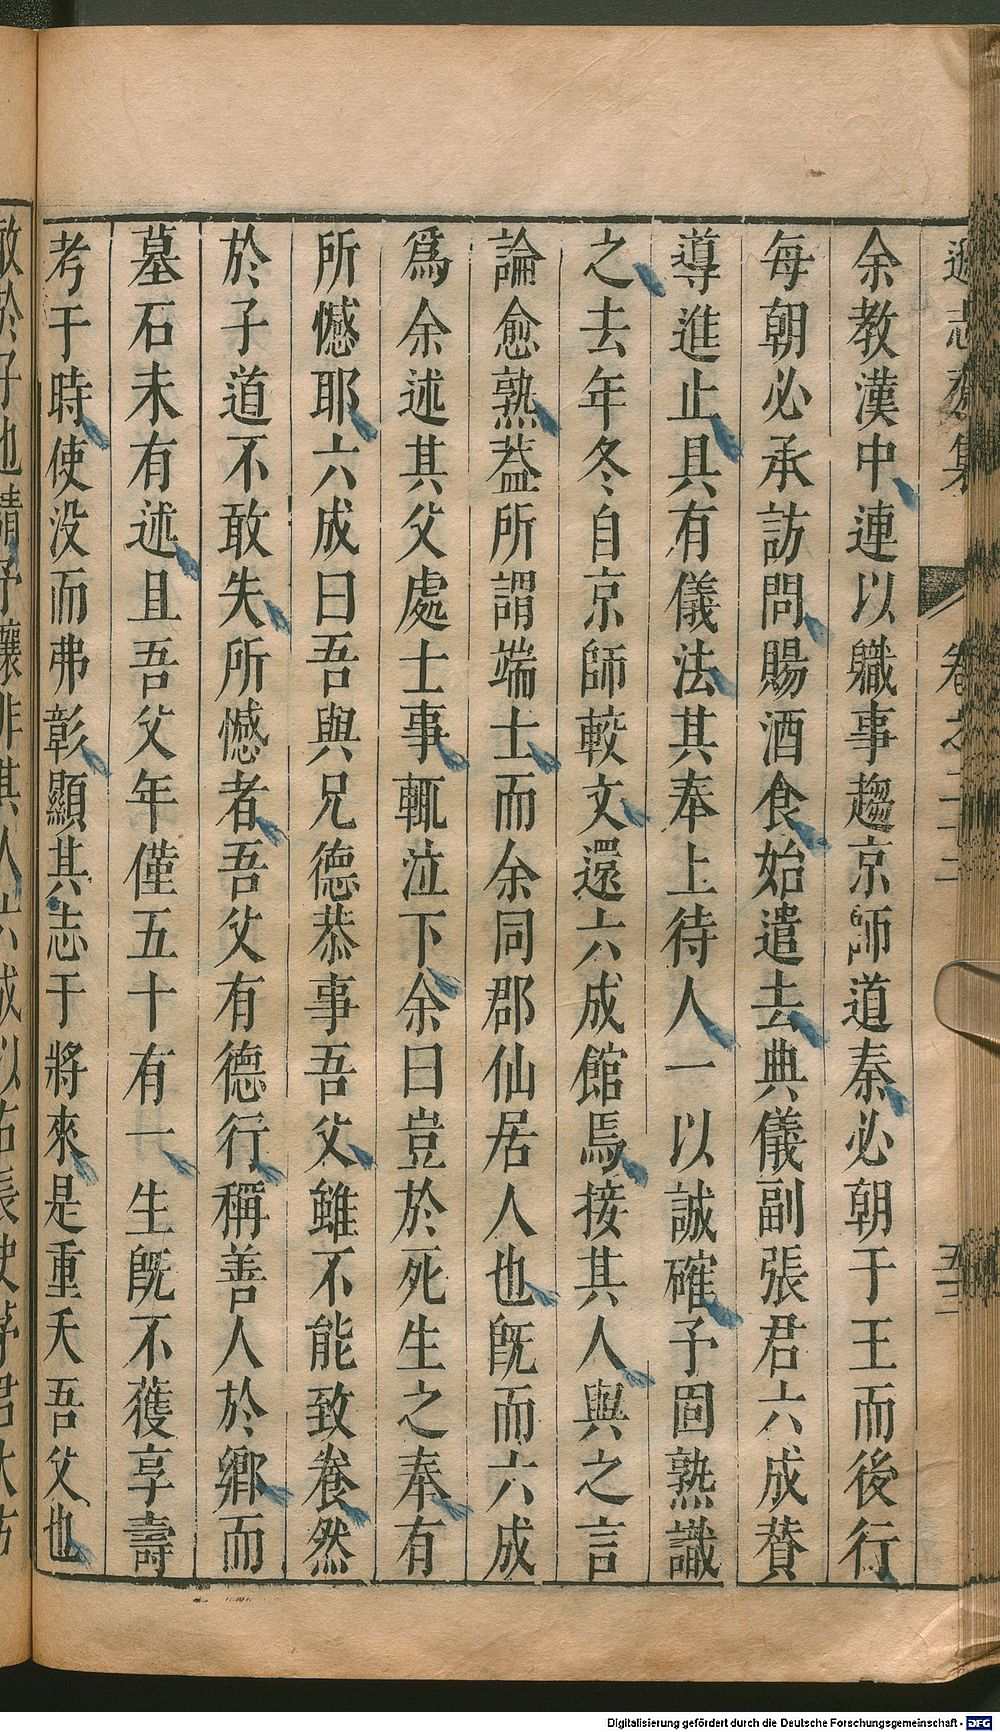 遜志齋集 卷之二十二 五三
余教漢中連以職事趨京師道秦必朝于王而後行
每朝必承訪問賜酒食始遣去典儀副張君六成賛
導進止具有儀法其奉上待人一以誠確予固熟識
之去年冬自京師較文還六成館焉接其人與之言
論愈熟葢所謂端士而余同郡仙居人也旣而六成
爲余述其父處士事輒泣下余曰豈於死生之奉有
所憾耶六成曰吾與兄德恭事吾父雖不能致養然
於子道不敢失所憾者吾父有德行稱善人於鄉而
墓石未有述且吾父年僅五十有一生旣不獲享壽
考于時使没而弗彰顯其志于將來是重夭吾父也
敢於子也請予讓非其人
Digitalisierung gefördert durch die Deutsche Forschungsgemeinschaft - DFG